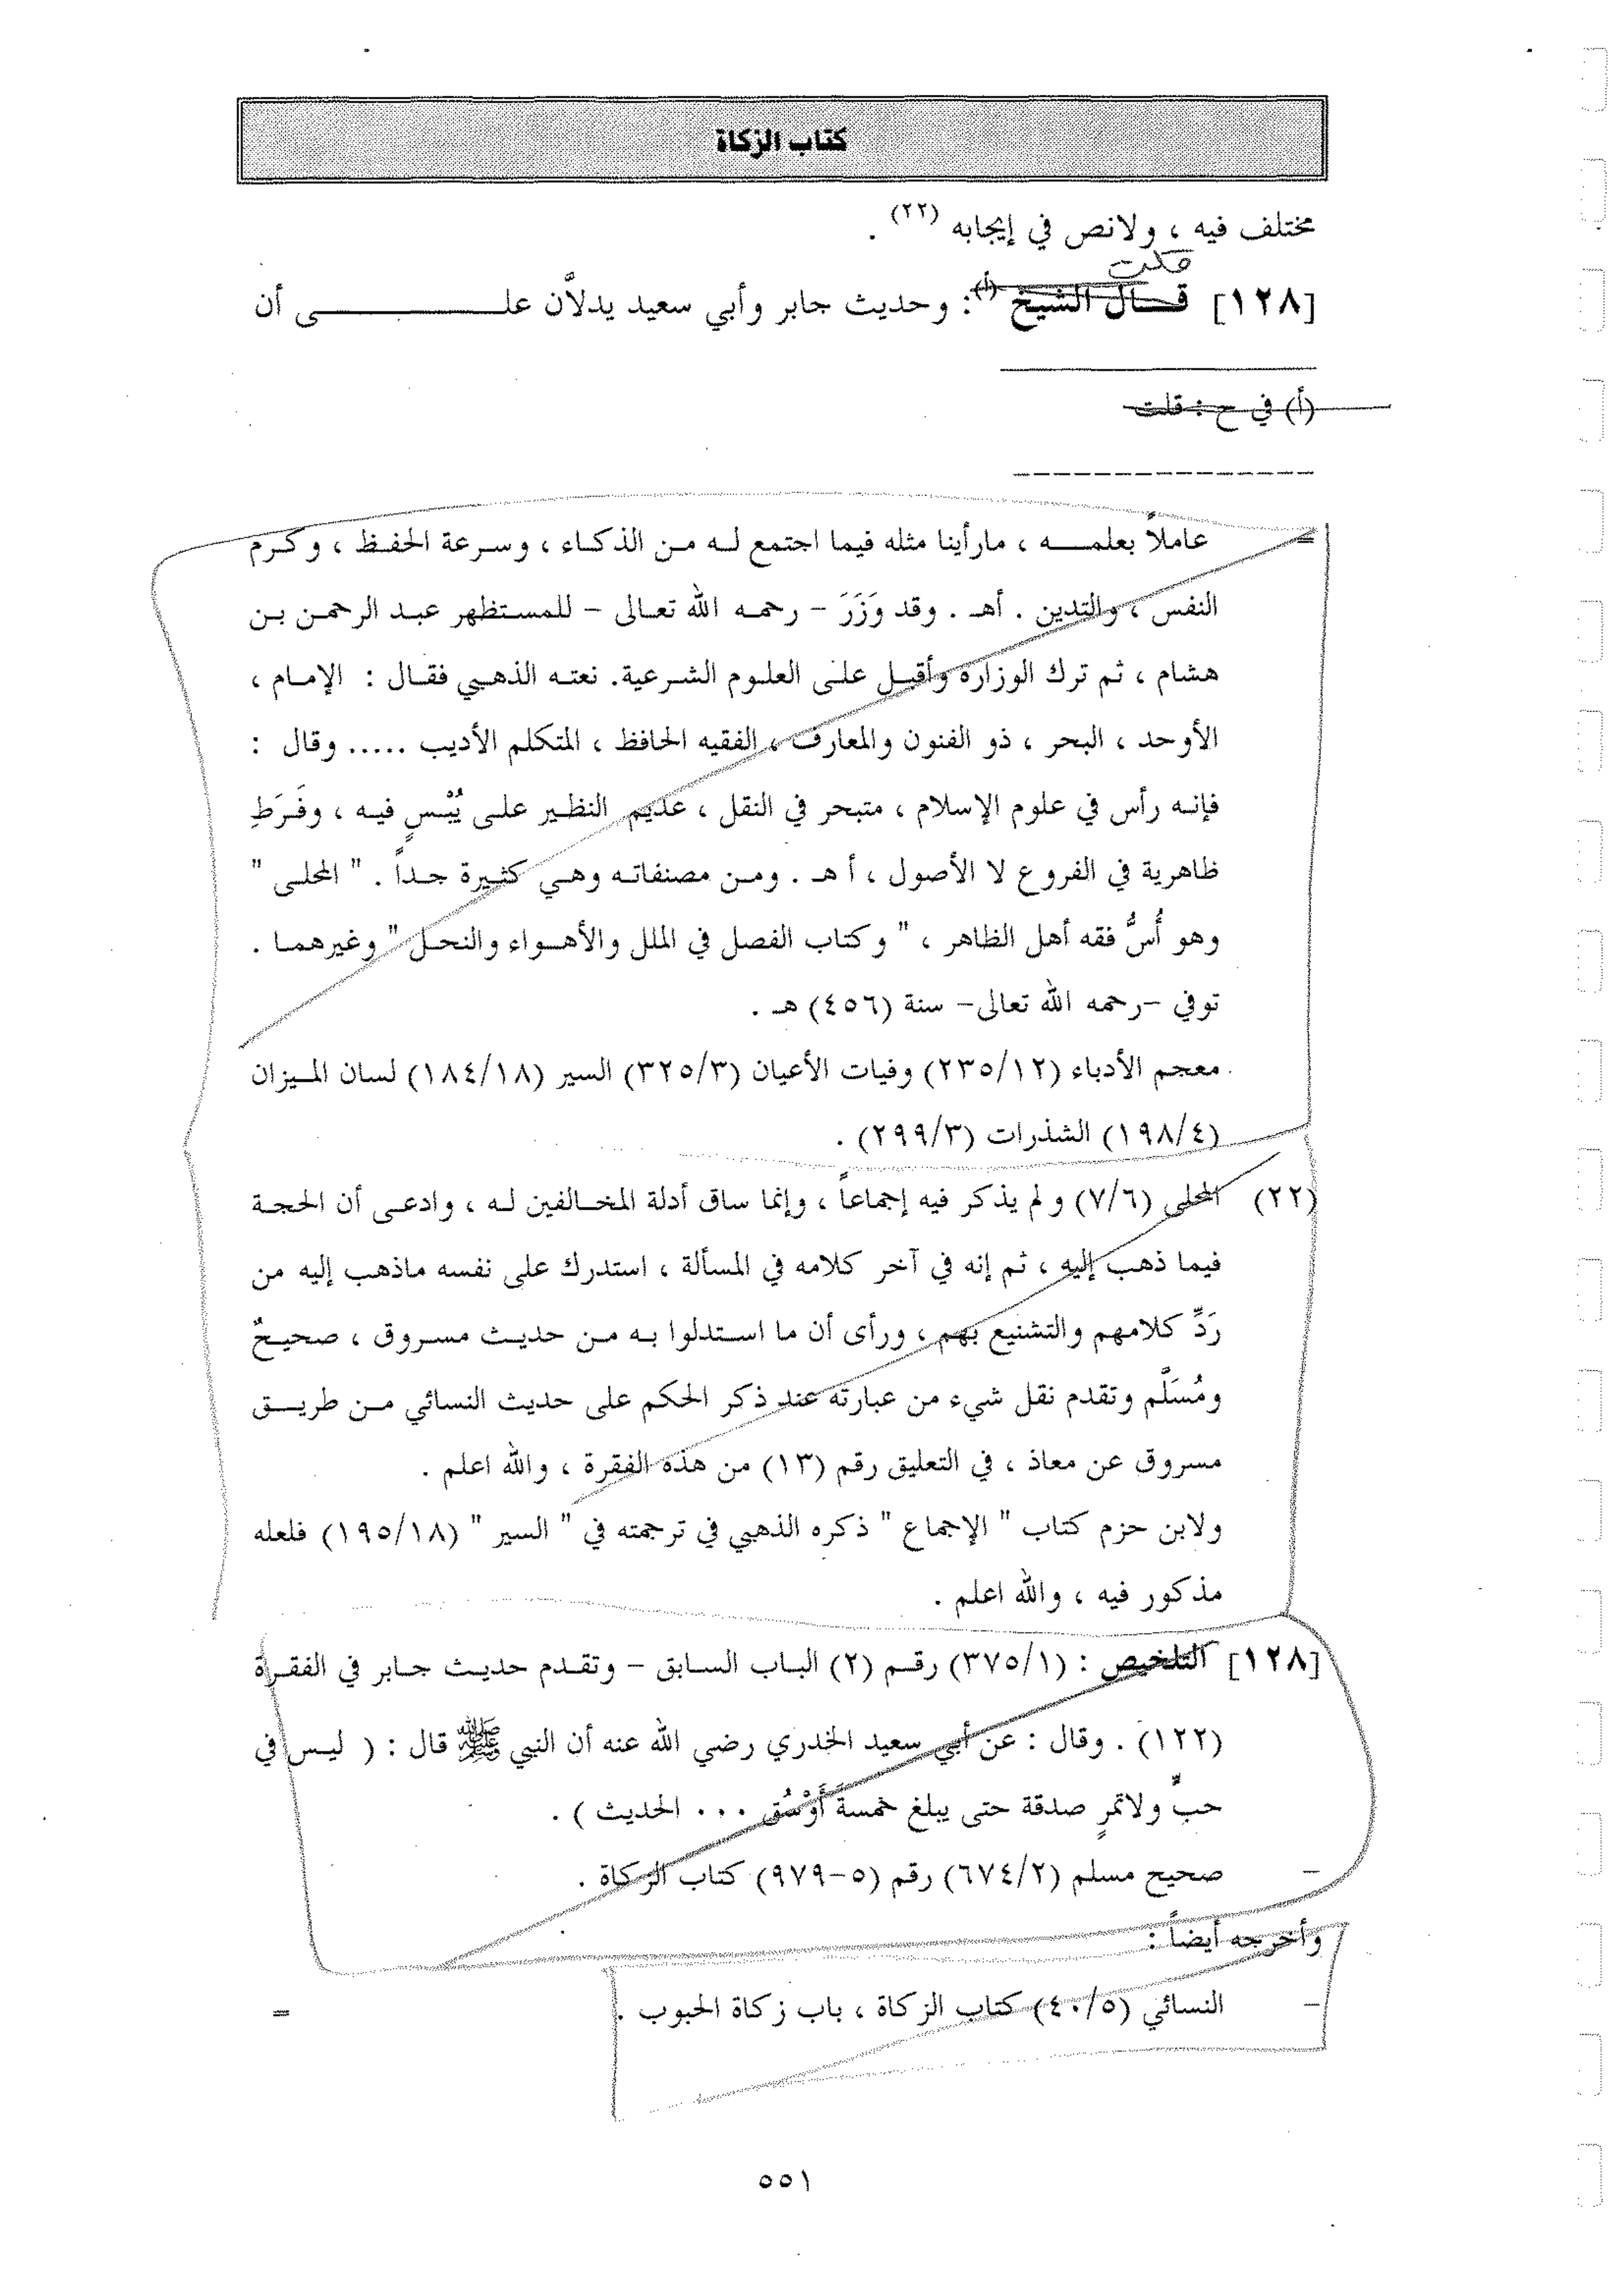 كتاب الزكاة
مختلف فيه ، ولانص في إيجابه (٢٢) .
قلت
[١٢٨] قـال الشيخ (أ): وحديث جابر وأبي سعيد يدلاَّن علـى أن
(أ) في ح : قلت
= عاملاً بعلمـه ، مارأينا مثله فيما اجتمع له من الذكاء ، وسرعة الحفظ ، وكرم
النفس ، والتدين . أهـ . وقد وَزَرَ - رحمه الله تعالى - للمستظهر عبد الرحمن بن
هشام ، ثم ترك الوزاره وأقبل على العلوم الشرعية. نعته الذهبي فقال : الإمام ،
الأوحد ، البحر ، ذو الفنون والمعارف ، الفقيه الحافظ ، المتكلم الأديب ..... وقال :
فإنه رأس في علوم الإسلام ، متبحر في النقل ، عديم النظير على يُبْسٍ فيه ، وفَرَطِ
ظاهرية في الفروع لا الأصول ، أ هـ . ومن مصنفاته وهي كثيرة جداً . " المحلى "
وهو أُسُّ فقه أهل الظاهر ، " وكتاب الفصل في الملل والأهواء والنحل " وغيرهما .
توفي -رحمه الله تعالى- سنة (٤٥٦) هـ .
معجم الأدباء (٢٣٥/١٢) وفيات الأعيان (٣٢٥/٣) السير (١٨٤/١٨) لسان الميزان
(١٩٨/٤) الشذرات (٢٩٩/٣) .
(٢٢) المحلى (٧/٦) ولم يذكر فيه إجماعاً ، وإنما ساق أدلة المخالفين له ، وادعى أن الحجة
فيما ذهب إليه ، ثم إنه في آخر كلامه في المسألة ، استدرك على نفسه ماذهب إليه من
رَدِّ كلامهم والتشنيع بهم ، ورأى أن ما استدلوا به من حديث مسروق ، صحيحٌ
ومُسَلَّم وتقدم نقل شيء من عبارته عند ذكر الحكم على حديث النسائي من طريق
مسروق عن معاذ ، في التعليق رقم (١٣) من هذه الفقرة ، والله اعلم .
ولابن حزم كتاب " الإجماع " ذكره الذهبي في ترجمته في " السير " (١٩٥/١٨) فلعله
مذكور فيه ، والله اعلم .
[١٢٨] التلخيص : (٣٧٥/١) رقم (٢) الباب السابق - وتقدم حديث جابر في الفقرة
(١٢٢) . وقال : عن أبي سعيد الخدري رضي الله عنه أن النبي ﷺ قال : ( ليس في
حبٍّ ولاتمرٍ صدقة حتى يبلغ خمسةَ أَوْسُق ... الحديث ) .
- صحيح مسلم (٦٧٤/٢) رقم (٥-٩٧٩) كتاب الزكاة .
وأخرجه أيضاً :
- النسائي (٤٠/٥) كتاب الزكاة ، باب زكاة الحبوب . =
٥٥١